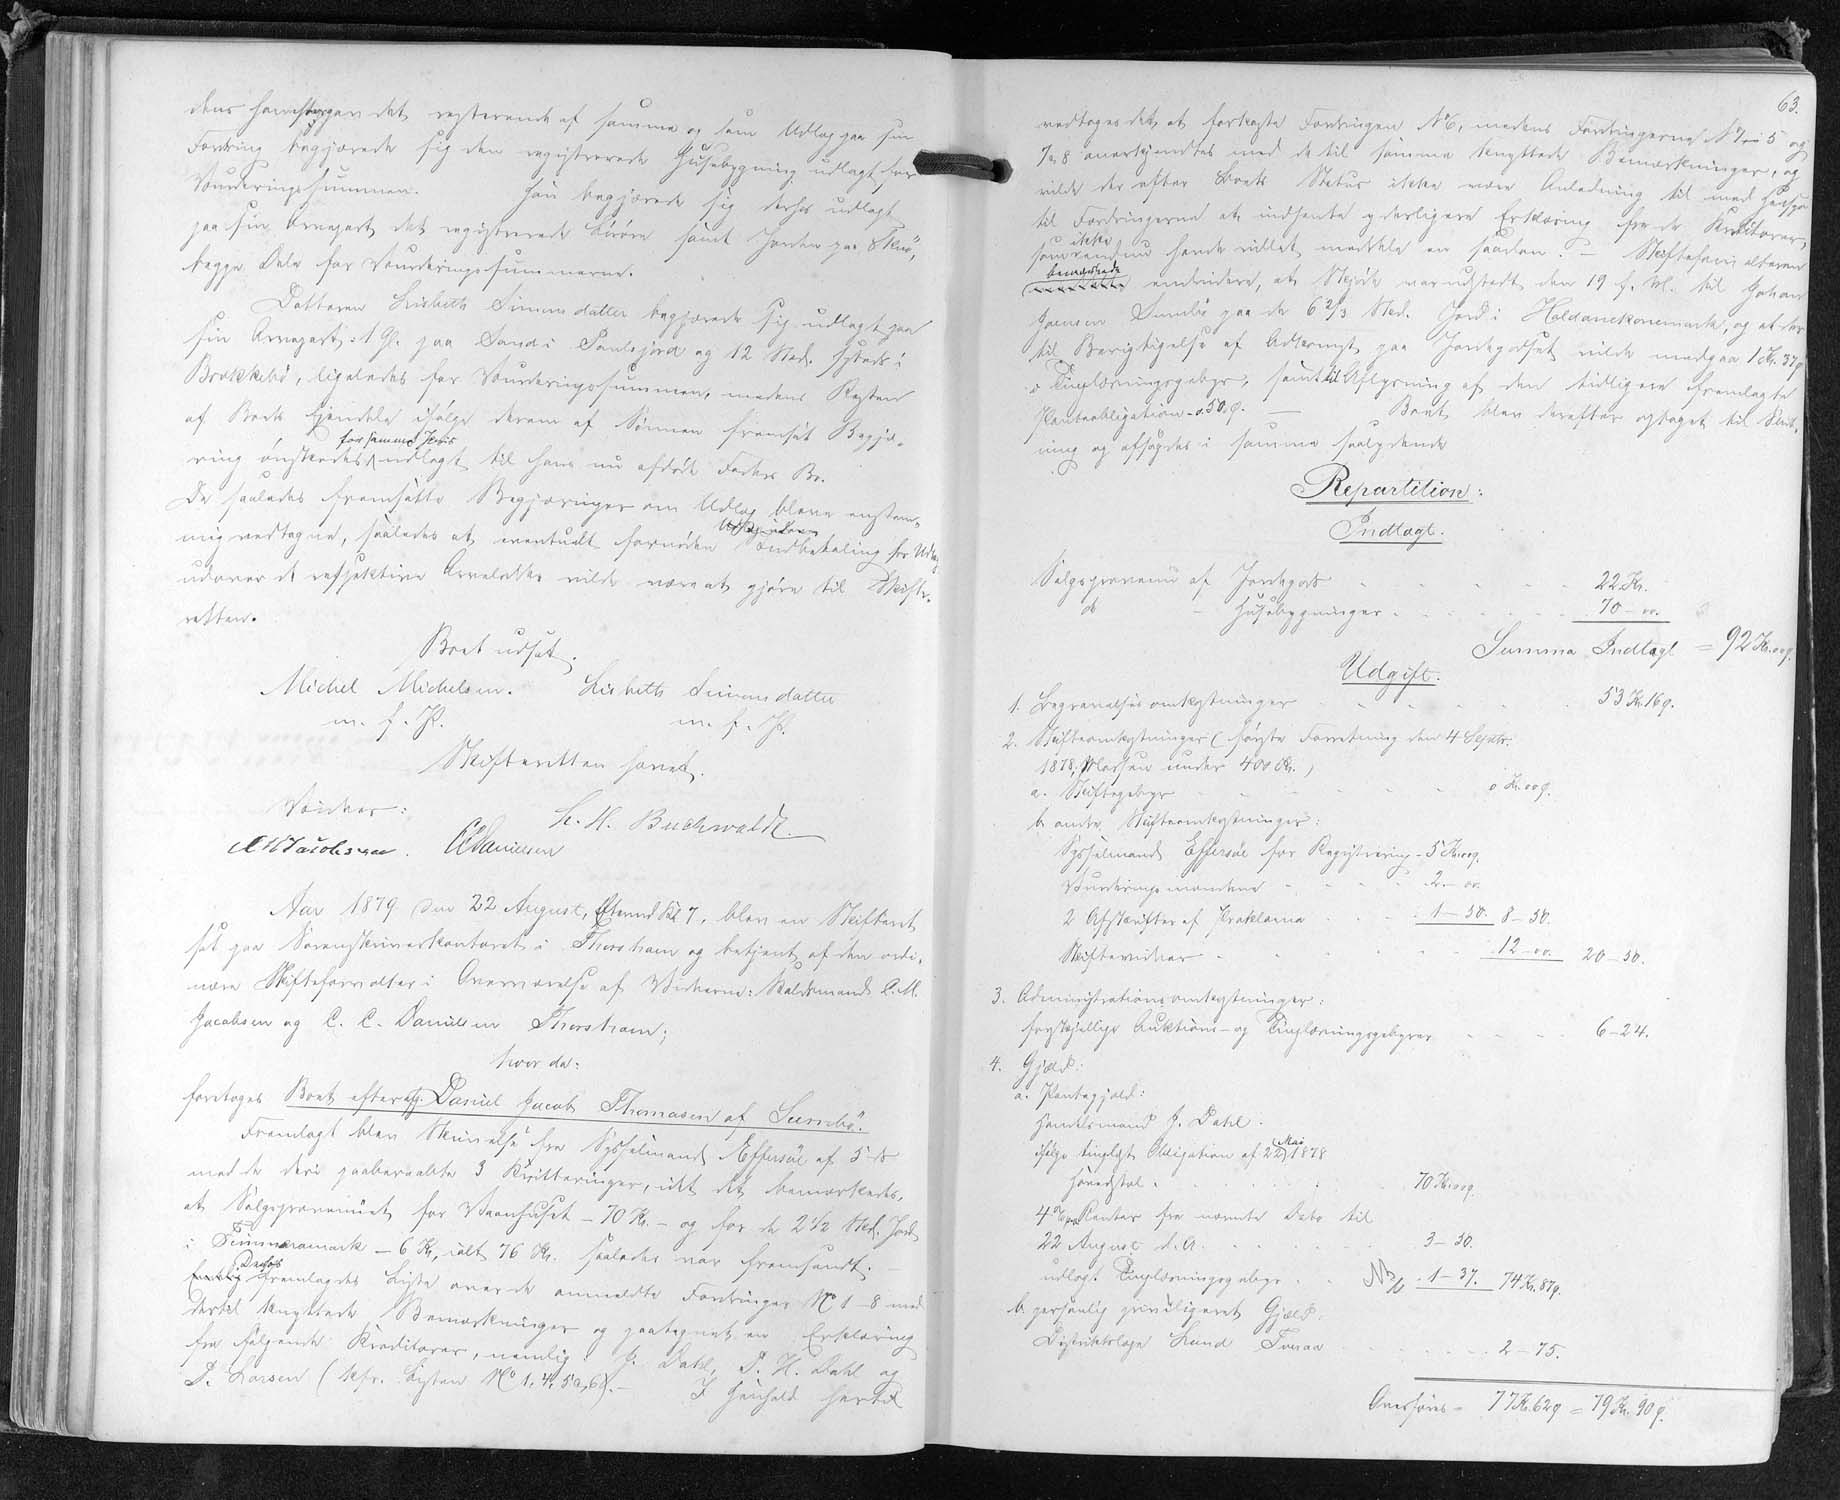 dens Forestagen det resterende af samme og som Udlæg paa sin
Fordring begjærede sig den registrerede Husebygning udlagt for
Vourderingssummen. Hun begjærede sig derhos udlagt
paa sin Arvepart det registrerede Løsøre samt Jorden paa
begge Dele for Vourderingssummerne.
Datteren Lisbeth Simonsdatter begjærede sig udlagt paa
sin Arvepart: 1 Gl. paa Sand i Sandsjord og 12 Sk.
ligeledes for Vourderingssummen, medens Resten
af Boets Ejendele ifølge derom af Sønnen fremsat Begjæ-
ring ønskedes for samme Priis udlagt til hans nu afdøde Faders Bo.
De saaledes fremsatte Begjæringer om Udlæg bleve enstem-
mig vedtagne, saaledes at eventuelt fornøden Contantbetaling for Udlæg
udover de respektive Arvelodder vilde være at gjøre til Skifte-
retten.
Boet udsat.
Michel Michelsen. Lisbeth Simonsdatter
m. f. P. m. f. P.
Skifteretten hævet.
H. H. Buchwaldt.
Vidner:
C M Jacobsen. C C Danielsen
Aar 1879 den 22 August, Efterm. Kl 7, blev en Skifteret
sat paa Sorenskriverkontoret i Thorshavn og betjent af den ordi-
nære Skifteforvalter i Overværelse af Vidnerne: C. M.
Jacobsen og C. C. Danielsen Thorshavn;
hvor da:
foretoges Boet efter afg. Daniel Jacob Thomasen af Sumbø.
Fremlagt blev Skrivelse fra Sysselmand Effersøe af 5 ds
med de deri paaberaabte 3 Kvitteringer, idet det bemærkedes,
at Salgsprovenuet for Vaaenhuset - 70 Kr. - og for de 2 1/2 Sk. Jord
i - 6 Kr., ialt 76 Kr. saaledes var fremsendt. -
Derhos fremlagdes Liste over de anmeldte Fordringer No 1-8 med
dertil knyttede Bemærkninger og paategnet en Erklæring
fra følgende Kreditorer, nemlig: J. Dahl, P. H. Dahl og
P. Larsen (kfr. Listen No 1, 4, 5a, 6). - I Henhold hertil
63.
vedtoges det, at forkaste Fordringen No 6, medens Fordringerne No 1-5 og
7 og 8 anerkjendtes med de til samme knyttede Bemærkninger, og
vilde der efter Boets Status ikke være Anledning til med Hensyn
til Fordringerne at indhente yderligere Erklæring fra de Kreditorer,
som endnu ikke havde villet meddele en saadan. - Skifteforvalteren
bemærkede endvidere, at Skjøde var udstedt den 19 f. M. til Johan
Joensen Sumbø paa de 6 2/3 Sk. Jord i og at der
til Berigtigelse af Adkomst paa Jordegodset vilde medgaa 1 Kr. 37 ø
i Tinglæsningsgebyr, samt til Aflysning af den tidligere fremlagte
Panteobligation - 50 ø. - Boet blev derefter optaget til Slut-
ning og afsagdes i samme saalydende
Repartition:
Indtægt.
Salgsprovenu af Jordegods 22 Kr.
do - Husebygninger 70 - 00.
Summa Indtægt = 92 Kr. 00 ø.
Udgift.
1. Begravelsesomkostninger 53 Kr. 16 ø.
2. Skifteomkostninger (første Forretning den 4 Septr.
1878, Massen under 400 Kr.)
a. Skiftegebyr 0 Kr. 00 ø.
b. andre Skifteomkostninger:
Sysselmand Effersøe for Registrering - 5 Kr. 00 ø.
Vourderingsmændene 2 - 00
2 Afskrifter af Proklama 1 - 50. 8 - 50.
Skiftevidner 12 - 00. 20 - 50.
3. Administrationsomkostninger:
forskjellige Auktions- og Tinglæsningsgebyrer 6 - 24.
4. Gjæld:
a. Pantegjæld:
Handelsmand J. Dahl.
ifølge tinglyst Obligation af 22 Mai 1878
Hovedstol 70 Kr. 00 ø.
4% Renter fra nævnte Dato til
22 August d. A. 3 - 50.
udlagt Tinglæsningsgebyr 1 - 37. 74 Kr. 87 ø.
b. personlig priviligeret Gjæld.
Distriktslæge Lund Tveraa 2 - 75.
Overføres = 77 Kr. 62 ø = 79 Kr. 90 ø.